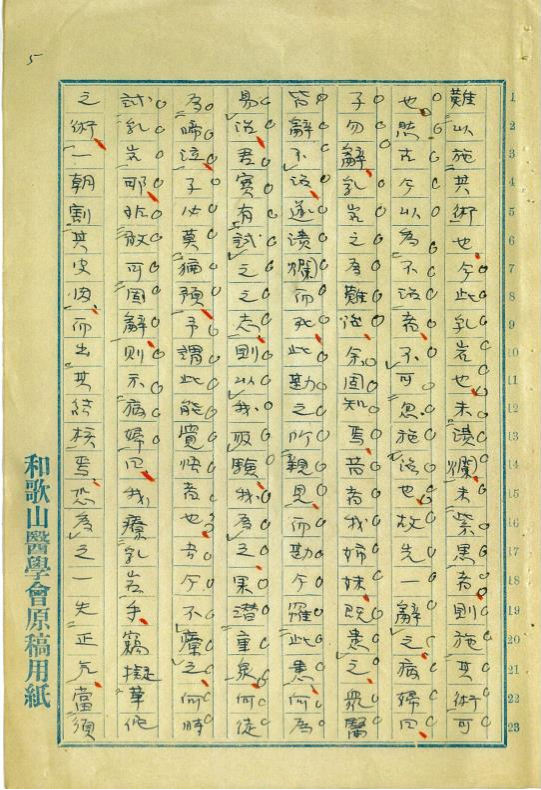 難以施其術也今此乳岩也未潰爛未紫黒者則施其術可
也然古今以為不治者不可忽施治也故先一辭之病婦曰
子勿辭乳岩之為難治余固知焉昔者我婦妹既患之衆醫
皆辭不治遂潰爛而死此勘之所親見而勘今罹此患何為
易治君実有試之之志則以我取驗我為之果潜重泉何徒
為啼泣子必莫猶預予謂此能覚悟者也者今不療之何時
試乳岩耶非敢可固辭則示病婦曰我療乳岩手竊擬華佗
之術一朝割其皮肉而出其結核焉恐為之一失正氣當須
和歌山醫學會原稿用紙
5
1
2
3
4
5
6
7
8
9
10
11
12
13
14
15
16
17
18
19
20
21
22
23